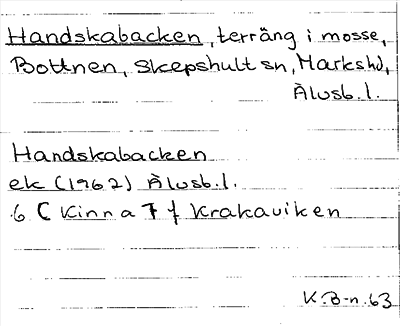 Handskabacken, terräng i mosse,
Bottnen, Skepshult sn, Marks hd,
Älvsb.l.
Handskabacken
ek (1962) Älvsb.l.
6 C Kinna 7 f Krakaviken
K.B-n.63